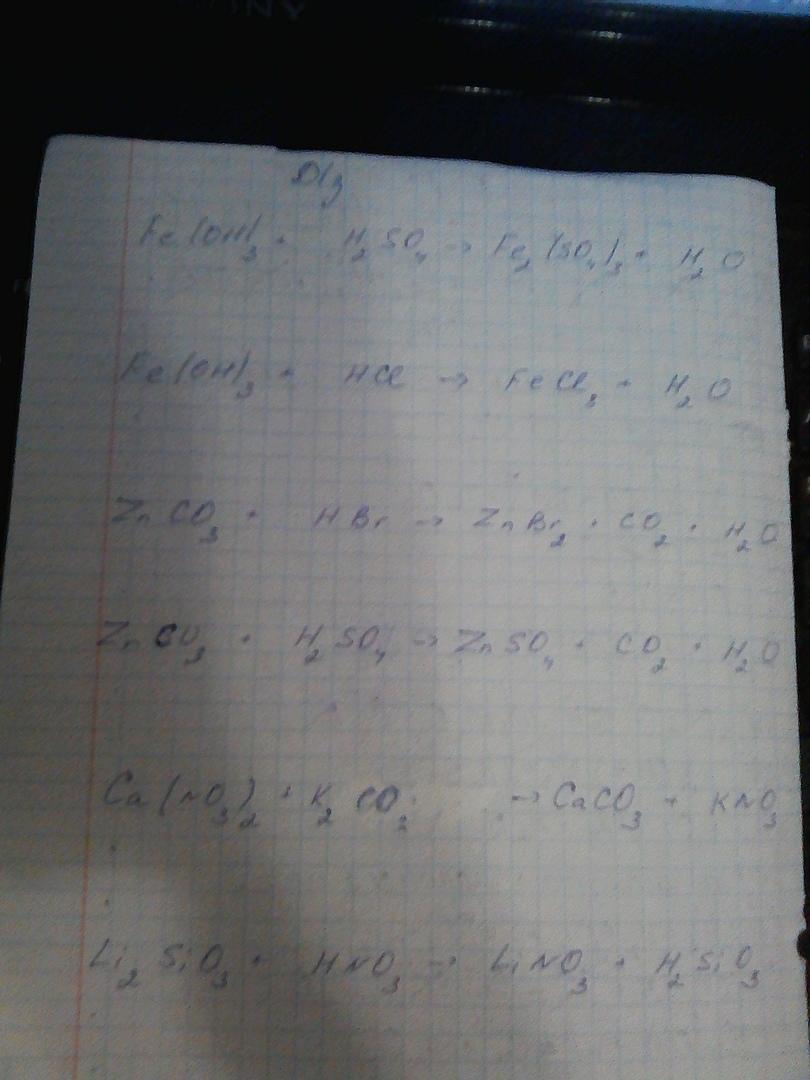 D/з
Fe(OH)₃ + H₂SO₄ → Fe₂(SO₄)₃ + H₂O
Fe(OH)₃ + HCl → FeCl₃ + H₂O
ZnCO₃ + HBr → ZnBr₂ + CO₂ + H₂O
ZnCO₃ + H₂SO₄ → ZnSO₄ + CO₂ + H₂O
Ca(NO₃)₂ + K₂CO₃ → CaCO₃ + KNO₃
Li₂SiO₃ + HNO₃ → LiNO₃ + H₂SiO₃